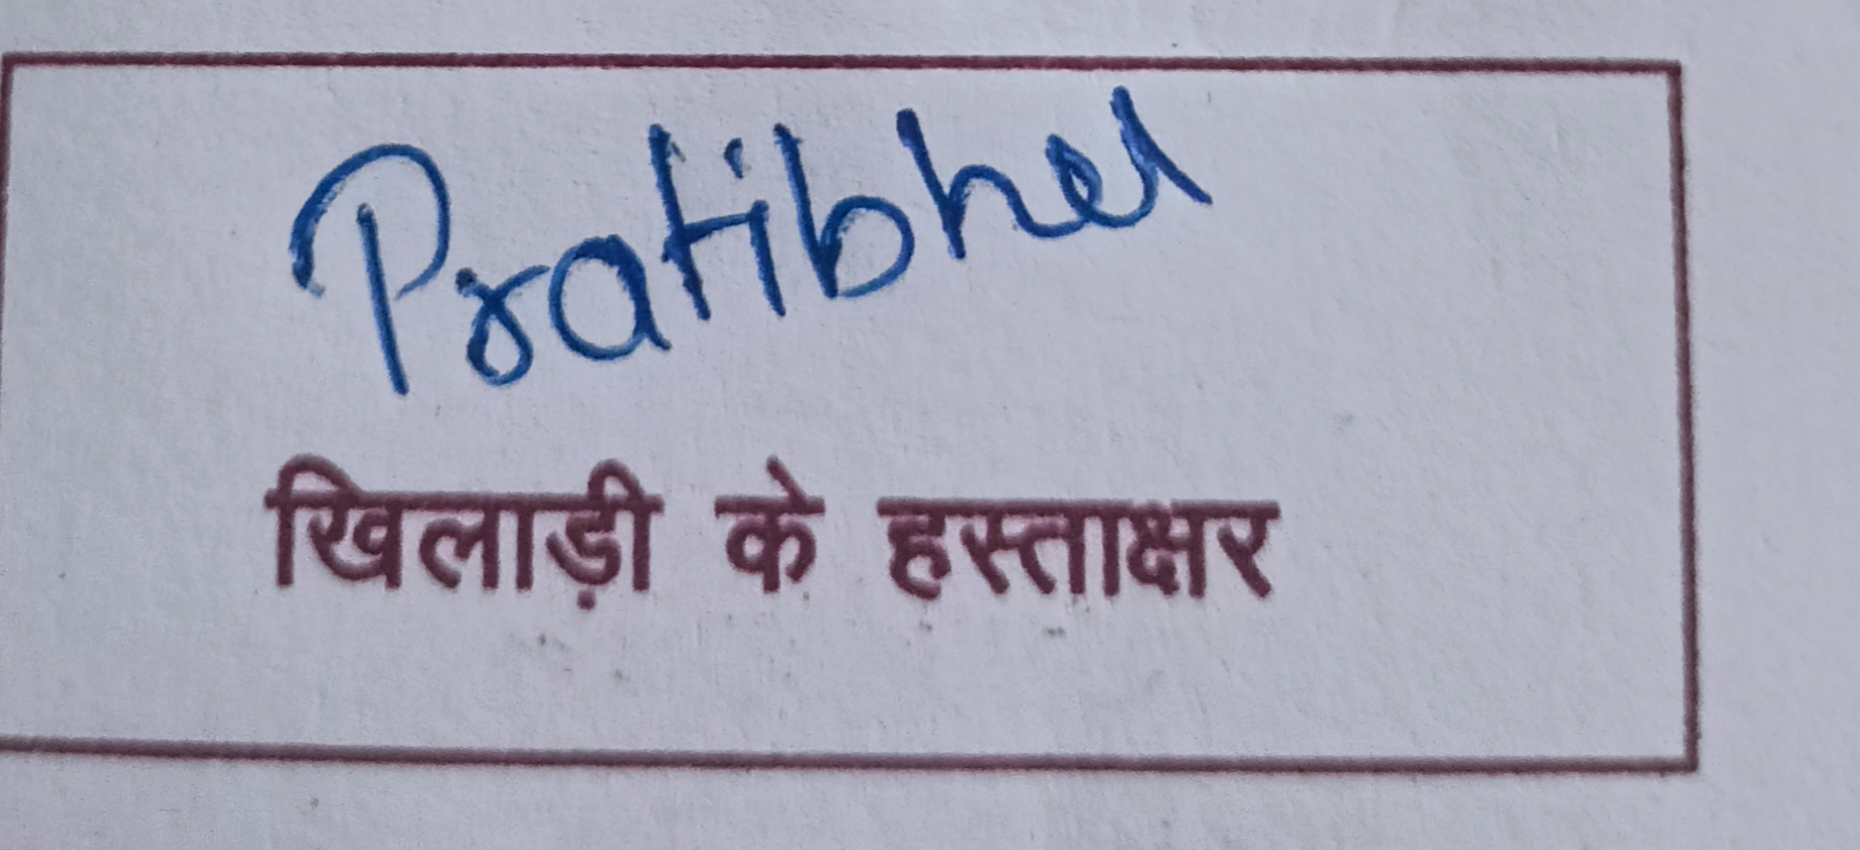 Pratibha
खिलाड़ी के हस्ताक्षर